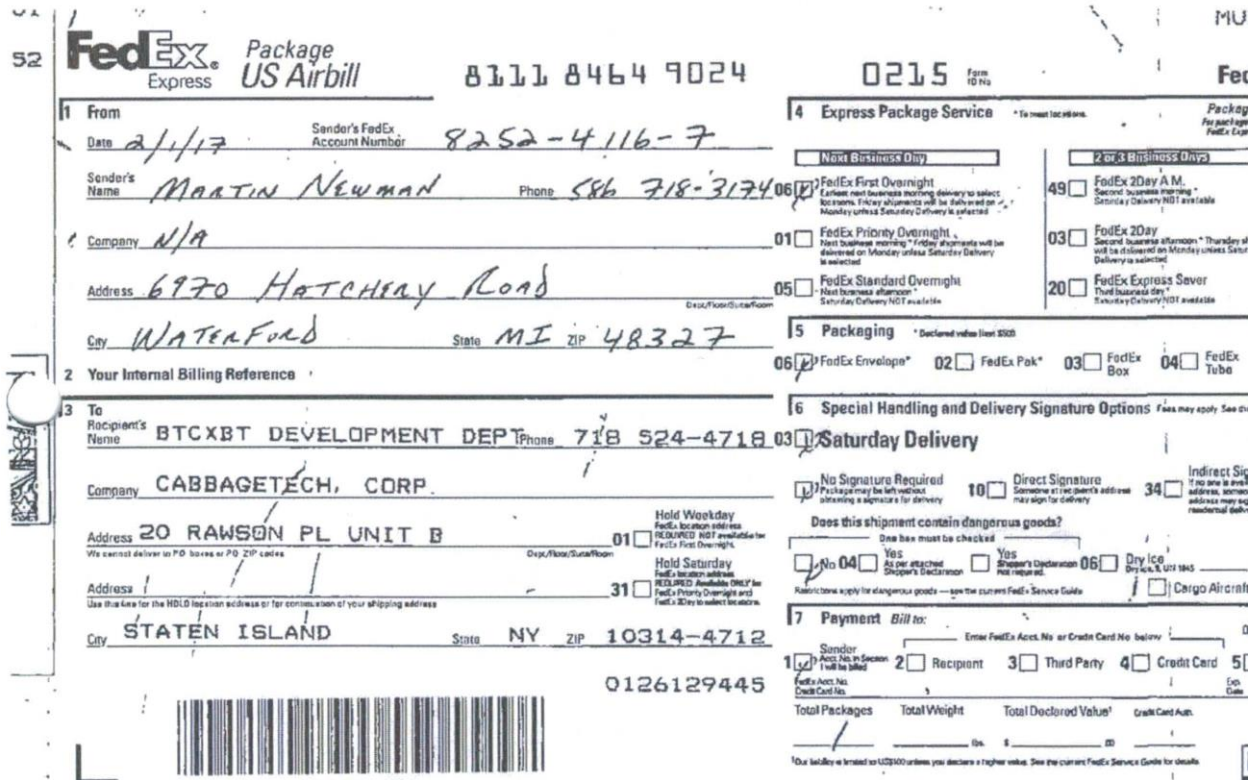 MU
52
FedEx® Express
Package
US Airbill
8111 8464 9024
0215 Form ID No
Fed
1 From
Date 2/1/17
Sender's FedEx Account Number 8252-4116-7
Sender's Name MARTIN NEWMAN Phone 586 718-3174
Company N/A
Address 6970 HATCHERY ROAD
Dept/Floor/Suite/Room
City WATERFORD State MI ZIP 48327
2 Your Internal Billing Reference
3 To
Recipient's Name BTCXBT DEVELOPMENT DEPT Phone 718 524-4718
Company CABBAGETECH, CORP.
Address 20 RAWSON PL UNIT B
We cannot deliver to PO boxes or PO ZIP codes
Dept/Floor/Suite/Room
01 Hold Weekday
FedEx location address
REQUIRED NOT available for
FedEx First Overnight
Address
Use this line for the HOLD location address or for continuation of your shipping address
31 Hold Saturday
FedEx location address
REQUIRED Available ONLY for
FedEx Priority Overnight and
FedEx 2Day to select locations
City STATEN ISLAND State NY ZIP 10314-4712
0126129445
4 Express Package Service * To most locations
Packag
For package
FedEx Expr
Next Business Day
06 FedEx First Overnight
Earliest next business morning delivery to select
locations. Friday shipments will be delivered on
Monday unless Saturday Delivery is selected
01 FedEx Priority Overnight
Next business morning * Friday shipments will be
delivered on Monday unless Saturday Delivery
is selected
05 FedEx Standard Overnight
Next business afternoon *
Saturday Delivery NOT available
2 or 3 Business Days
49 FedEx 2Day A.M.
Second business morning *
Saturday Delivery NOT available
03 FedEx 2Day
Second business afternoon * Thursday sh
will be delivered on Monday unless Satur
Delivery is selected
20 FedEx Express Saver
Third business day *
Saturday Delivery NOT available
5 Packaging * Declared value limit $500
06 FedEx Envelope* 02 FedEx Pak* 03 FedEx Box 04 FedEx Tube
6 Special Handling and Delivery Signature Options Fees may apply See the
03 Saturday Delivery
No Signature Required
Package may be left without
obtaining a signature for delivery
10 Direct Signature
Someone at recipient's address
may sign for delivery
34 Indirect Sig
If no one is avai
address, someon
address may sig
residential deliv
Does this shipment contain dangerous goods?
One box must be checked
No 04 Yes
As per attached
Shipper's Declaration
Yes
Shipper's Declaration
not required
06 Dry Ice
Dry Ice, 9, UN 1845
Restrictions apply for dangerous goods — see the current FedEx Service Guide
Cargo Aircraft
7 Payment Bill to:
Enter FedEx Acct. No. or Credit Card No. below
1 Sender
Acct. No. in Section
1 will be billed
2 Recipient 3 Third Party 4 Credit Card 5
FedEx Acct. No.
Credit Card No.
Exp. Date
Total Packages Total Weight Total Declared Value† Credit Card Auth.
1 lbs. $ .00
†Our liability is limited to US$100 unless you declare a higher value. See the current FedEx Service Guide for details